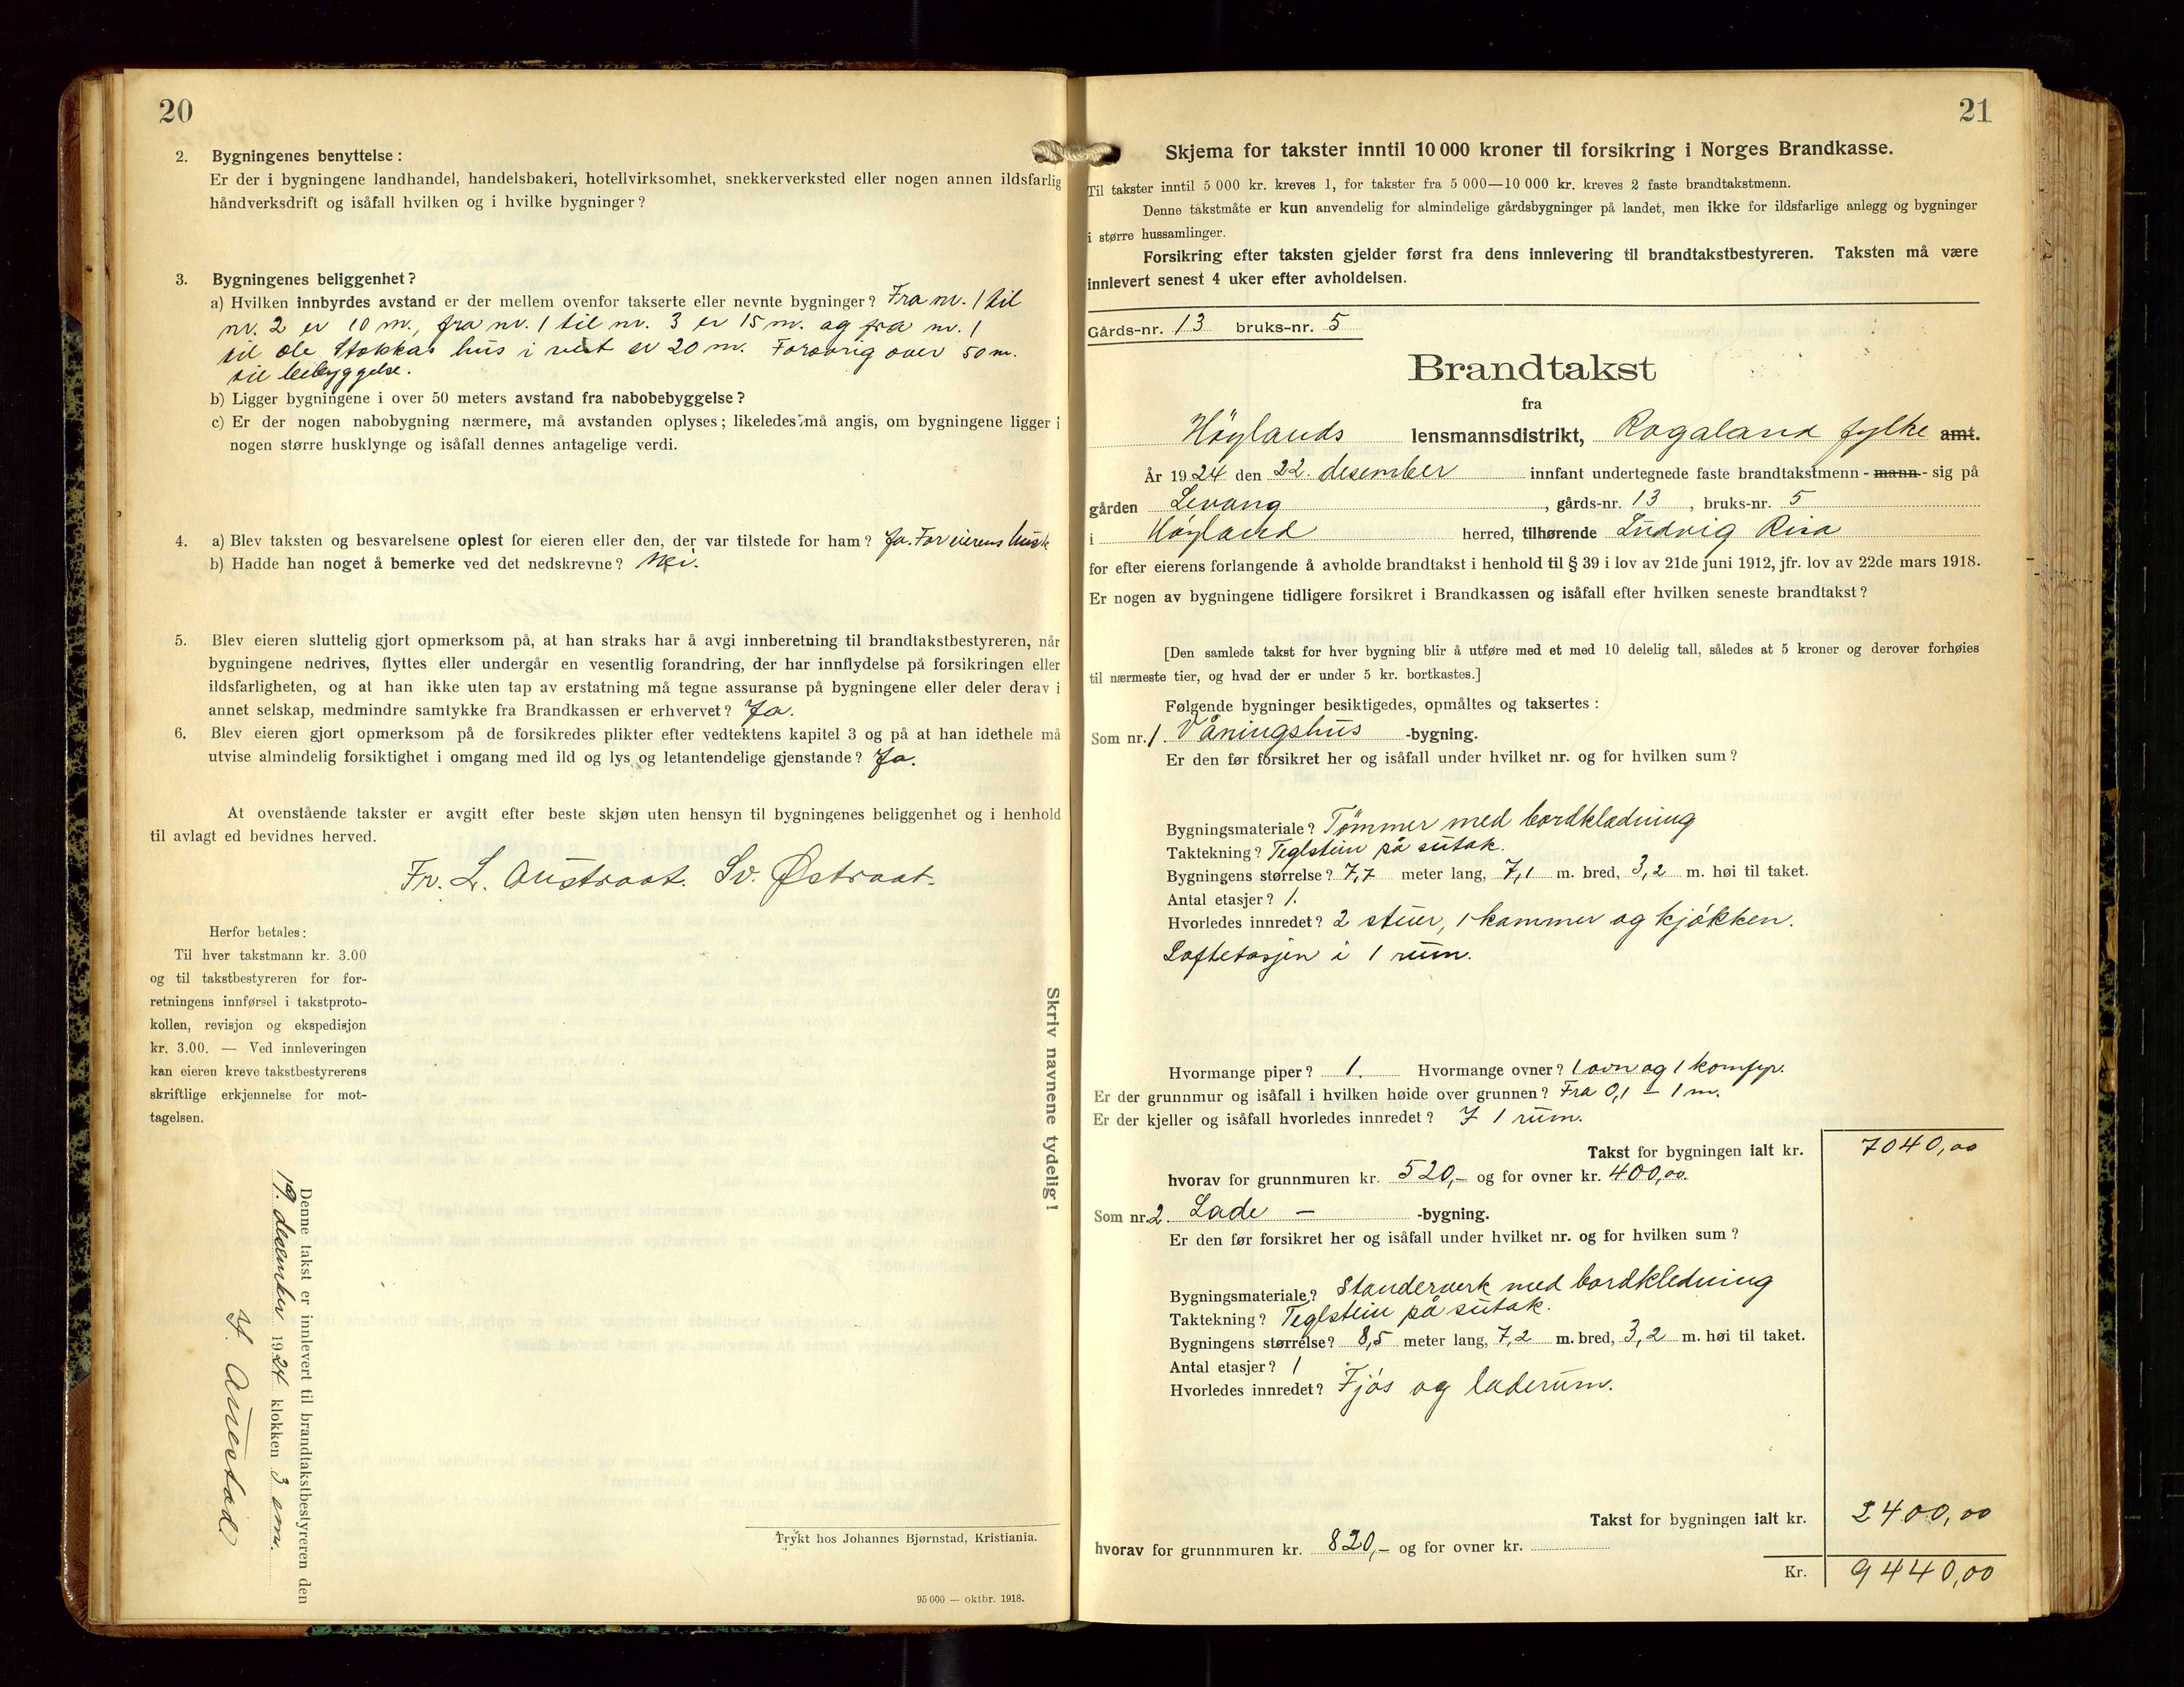 20
2. Bygningenes benyttelse:
Er der i bygningene landhandel, handelsbakeri, hotellvirksomhet, snekkerverksted eller nogen annen ildsfarlig
håndverksdrift og isåfall hvilken og i hvilke bygninger?
3. Bygningenes beliggenhet?
a) Hvilken innbyrdes avstand er der mellem ovenfor takserte eller nevnte bygninger? Fra nr. 1 til
nr. 2 er 10 m., fra nr. 1 til nr. 3 er 15 m. og fra nr. 1
til Ole Stokkas hus i vest er 20 m. Forøvrig over 50 m.
til bebyggelse.
b) Ligger bygningene i over 50 meters avstand fra nabobebyggelse?
c) Er der nogen nabobygning nærmere, må avstanden oplyses; likeledes må angis, om bygningene ligger i
nogen større husklynge og isåfall dennes antagelige verdi.
4. a) Blev taksten og besvarelsene oplest for eieren eller den, der var tilstede for ham? Ja. For eierens
b) Hadde han noget å bemerke ved det nedskrevne? Nei.
5. Blev eieren sluttelig gjort opmerksom på, at han straks har å avgi innberetning til brandtakstbestyreren, når
bygningene nedrives, flyttes eller undergår en vesentlig forandring, der har innflydelse på forsikringen eller
ildsfarligheten, og at han ikke uten tap av erstatning må tegne assuranse på bygningene eller deler derav i
annet selskap, medmindre samtykke fra Brandkassen er erhvervet? Ja.
6. Blev eieren gjort opmerksom på de forsikredes plikter efter vedtektens kapitel 3 og på at han idethele må
utvise almindelig forsiktighet i omgang med ild og lys og letantendelige gjenstande? Ja.
At ovenstående takster er avgitt efter beste skjøn uten hensyn til bygningenes beliggenhet og i henhold
til avlagt ed bevidnes herved.
Fr. L. Austraat. Sv. Østraat.
Herfor betales:
Til hver takstmann kr. 3.00
og til takstbestyreren for for-
retningens innførsel i takstproto-
kollen, revisjon og ekspedisjon
kr. 3.00. — Ved innleveringen
kan eieren kreve takstbestyrerens
skriftlige erkjennelse for mot-
tagelsen.
Skriv navnene tydelig!
Denne takst er innlevert til brandtakstbestyreren den
19. desember 1924 klokken 3 em.
Aurestad
Trykt hos Johannes Bjørnstad, Kristiania.
95 000 — oktbr. 1918.
21
Skjema for takster inntil 10 000 kroner til forsikring i Norges Brandkasse.
Til takster inntil 5 000 kr. kreves 1, for takster fra 5 000—10 000 kr. kreves 2 faste brandtakstmenn.
Denne takstmåte er kun anvendelig for almindelige gårdsbygninger på landet, men ikke for ildsfarlige anlegg og bygninger
i større hussamlinger.
Forsikring efter taksten gjelder først fra dens innlevering til brandtakstbestyreren. Taksten må være
innlevert senest 4 uker efter avholdelsen.
Gårds-nr. 13 bruks-nr. 5
Brandtakst
fra
Höylands lensmannsdistrikt, Rogaland fylke amt.
År 1924 den 22. desember innfant undertegnede faste brandtakstmenn - mann - sig på
gården Levang, gårds-nr. 13, bruks-nr. 5
i Høyland herred, tilhørende Ludvig Risa
for efter eierens forlangende å avholde brandtakst i henhold til § 39 i lov av 21de juni 1912, jfr. lov av 22de mars 1918.
Er nogen av bygningene tidligere forsikret i Brandkassen og isåfall efter hvilken seneste brandtakst?
[Den samlede takst for hver bygning blir å utføre med et med 10 delelig tall, således at 5 kroner og derover forhøies
til nærmeste tier, og hvad der er under 5 kr. bortkastes.]
Følgende bygninger besiktigedes, opmåltes og taksertes:
Som nr. 1. Våningshus -bygning.
Er den før forsikret her og isåfall under hvilket nr. og for hvilken sum?
Bygningsmateriale? Tömmer med bordklædning
Taktekning? Teglstein på sutak.
Bygningens størrelse? 7,7 meter lang, 7,1 m. bred, 3,2 m. høi til taket.
Antal etasjer? 1.
Hvorledes innredet? 2 stuer, 1 kammer og kjøkken.
Loftetasjen i 1 rum.
Hvormange piper? 1. Hvormange ovner? 1 ovn og 1 komfyr.
Er der grunnmur og isåfall i hvilken høide over grunnen? Fra 0,1 – 1 m.
Er der kjeller og isåfall hvorledes innredet? I 1 rum.
Takst for bygningen ialt kr. 7040,00
hvorav for grunnmuren kr. 520,- og for ovner kr. 400,00.
Som nr. 2. Lade - -bygning.
Er den før forsikret her og isåfall under hvilket nr. og for hvilken sum?
Bygningsmateriale? Standerverk med bordkledning
Taktekning? Teglstein på sutak.
Bygningens størrelse? 8,5 meter lang, 7,2 m. bred, 3,2 m. høi til taket.
Antal etasjer? 1
Hvorledes innredet? Fjös og laderum.
Takst for bygningen ialt kr. 2400,00
hvorav for grunnmuren kr. 820,- og for ovner kr.
Kr. 9440,00